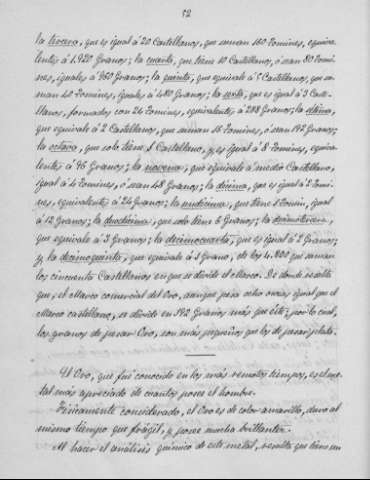 52
la tercera, que es igual á 20 Castellanos, que suman 160 Tomines, equiva-
lentes á 1.920 Granos; la cuarta, que tiene 10 Castellanos, ó sean 80 Tomi-
nes, iguales á 960 Granos; la quinta, que equivale á 5 Castellanos, que su-
man 40 Tomines, iguales á 480 Granos; la sexta, que es igual á 3 Caste-
llanos, formados con 24 Tomines, equivalentes á 288 Granos; la sétima,
que equivale á 2 Castellanos, que suman 16 Tomines, ó sean 192 Granos;
la octava, que solo tiene 1 Castellano, y es igual á 8 Tomines, equiva-
lentes á 96 Granos; la novena, que equivale á medio Castellano,
igual á 4 Tomines, ó sean 48 Granos; la décima, que es igual á 2 Tomi-
nes, equivalentes á 24 Granos; la undécima, que tiene 1 Tomin, igual
á 12 Granos; la duodécima, que solo tiene 6 Granos; la decimotercera,
que equivale á 3 Granos; la decimocuarta, que es igual á 2 Granos;
y la decimoquinta, que equivale á 1 Grano, de los 4.800 que suman
los cincuenta Castellanos en que se divide el Marco. De donde resulta
que, el Marco comercial del Oro, aunque pesa ocho onzas igual que el
Marco castellano, se divide en 192 Granos más que éste; por lo cual,
los granos de pesar Oro, son más pequeños que los de pesar plata.
El Oro, que fué conocido en los más remotos tiempos, es el me-
tal más apreciado de cuantos posee el hombre.
Físicamente considerado, el Oro es de color amarillo, duro al
mismo tiempo que frágil, y posee mucha brillantez.
Al hacer el análisis químico de este metal, resulta que tiene un